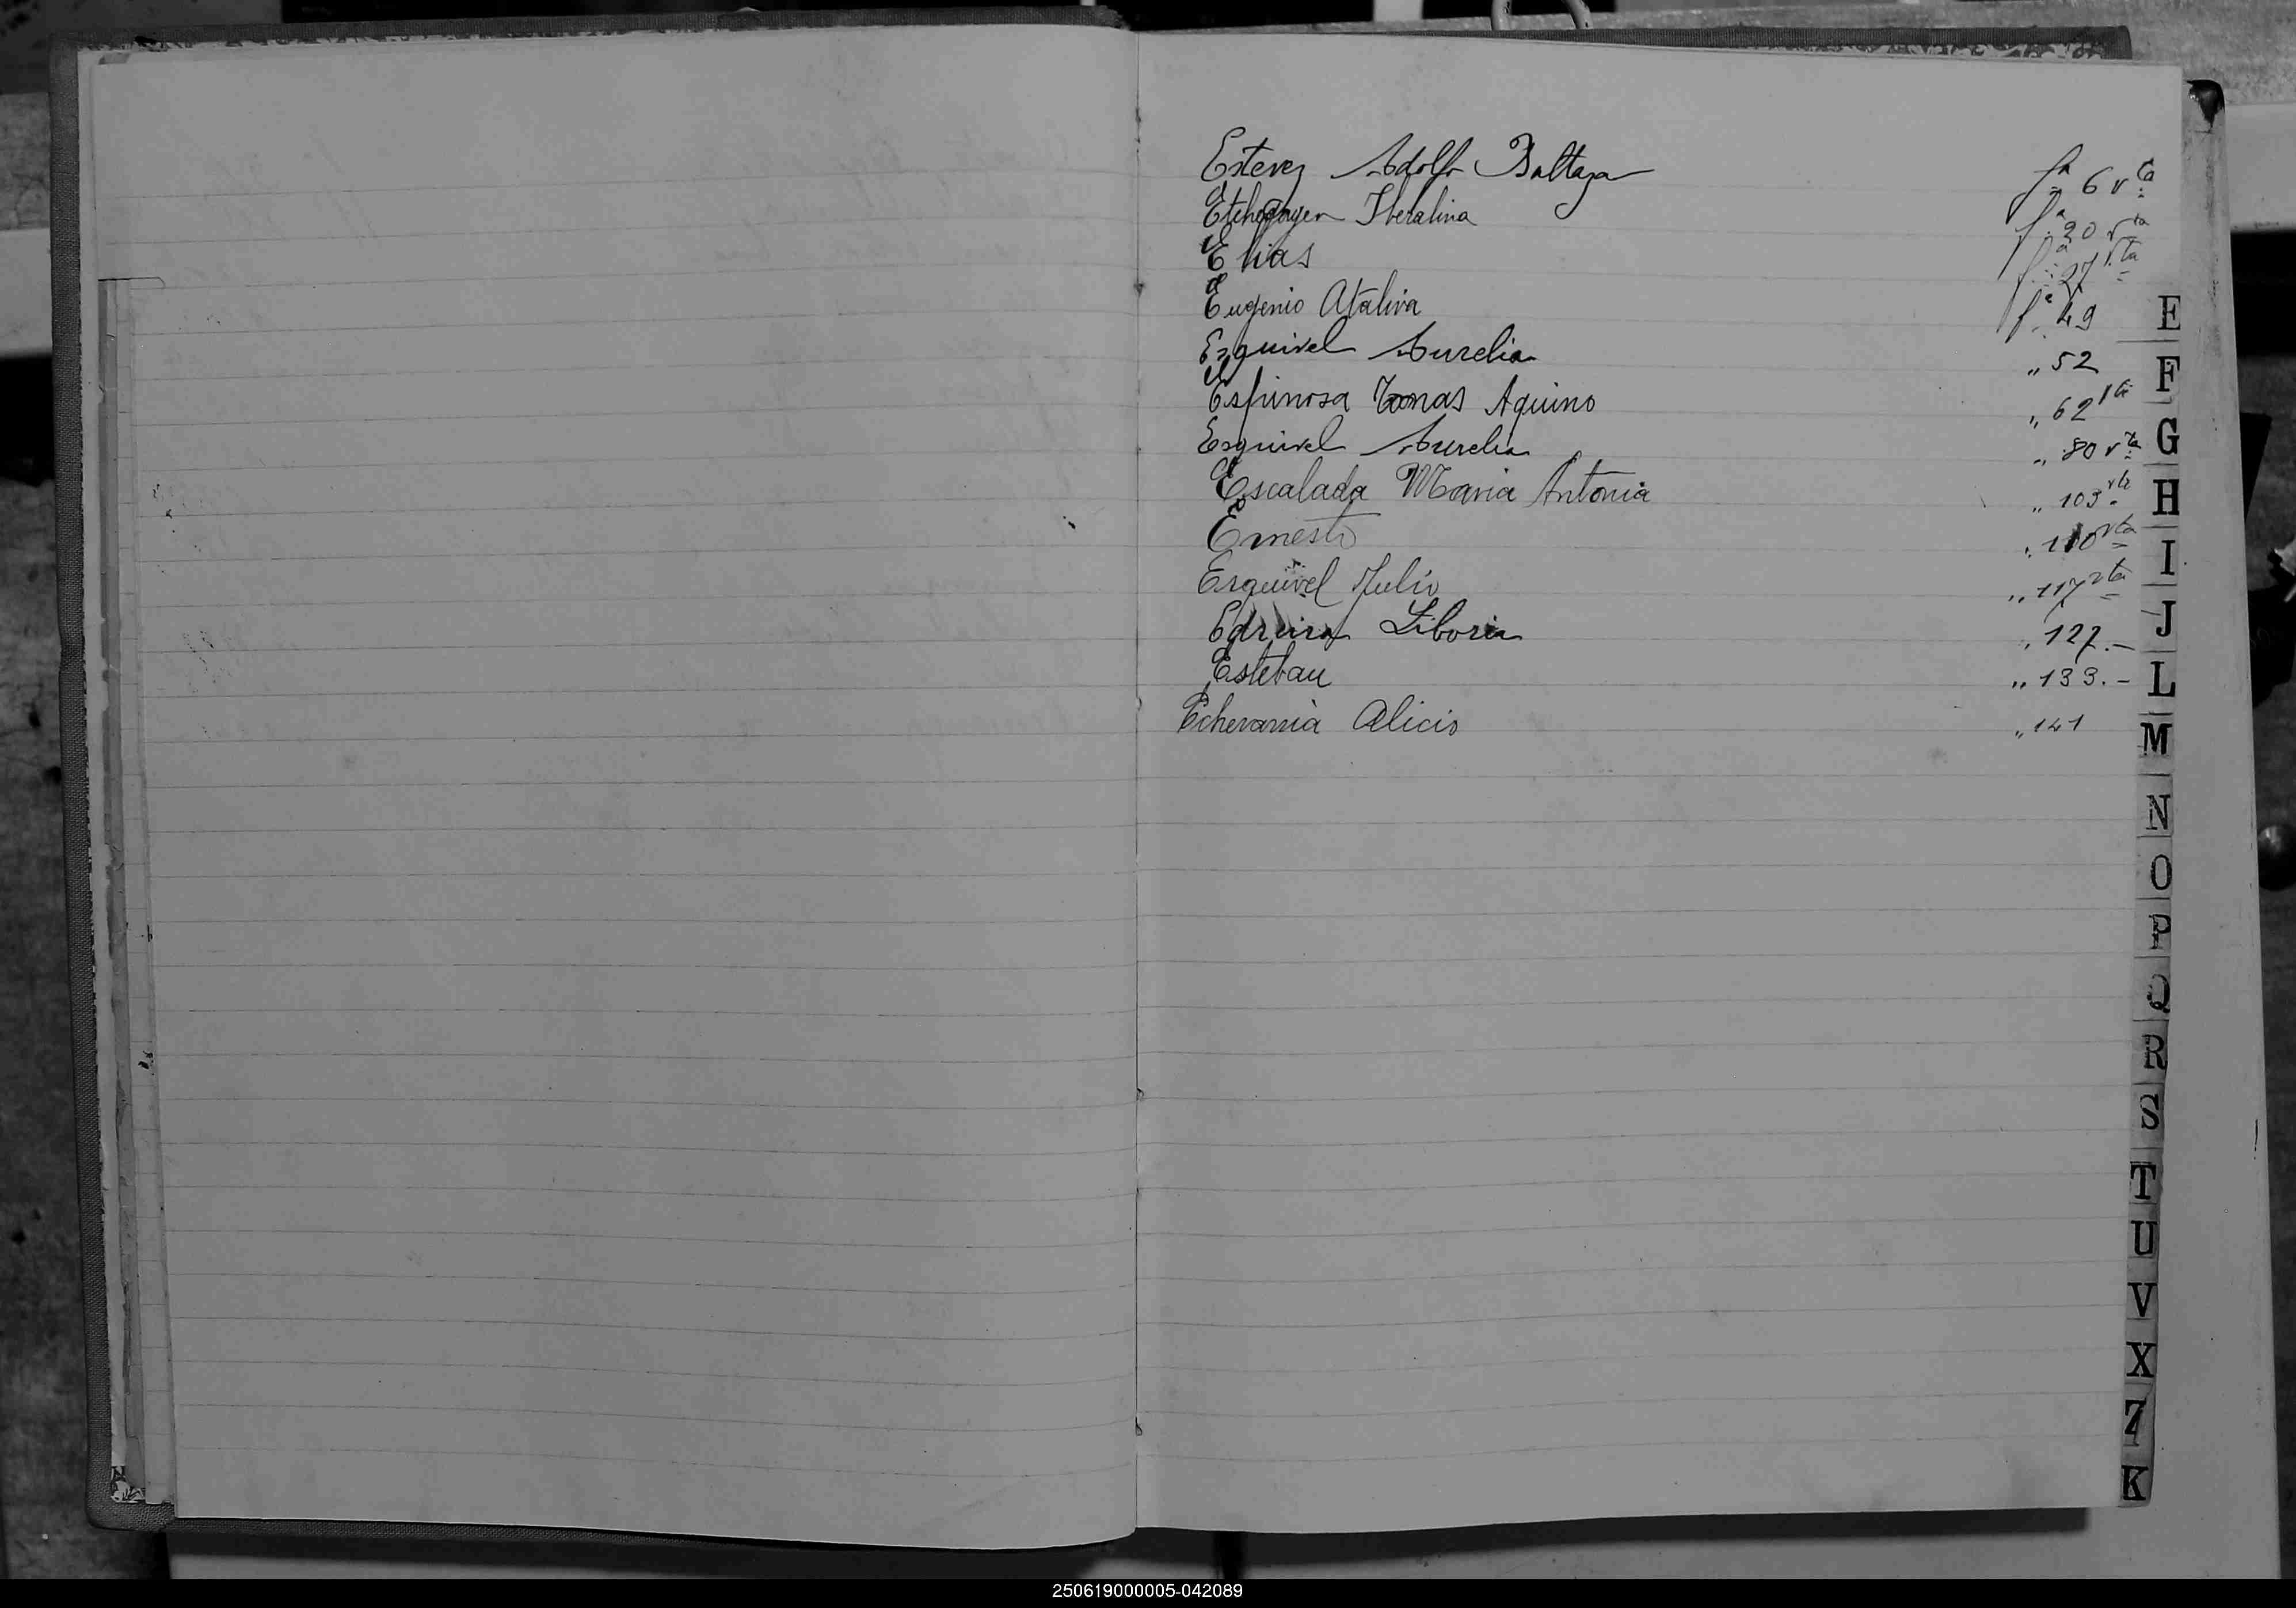 Estevez Adolfo Baltaza fª 6 vta
Etchegoyen Iberalina fª 20 vta
Elias fª 27 vta
Eugenio Ataliva fª 49
Esquivel Aurelia „ 52
Espinosa Tomas Aquino „ 62 vta
Esquivel Aurelia „ 80 vta
Escalada Maria Antonia „ 103 vta
Ernesto „ 110 vta
Esquivel Julio „ 117 vta
Liboria „ 127.-
Esteban „ 133.-
Echevarria Alicio „ 141
E
F
G
H
I
J
L
M
N
O
P
Q
R
S
T
U
V
X
Z
K
250619000005-042089